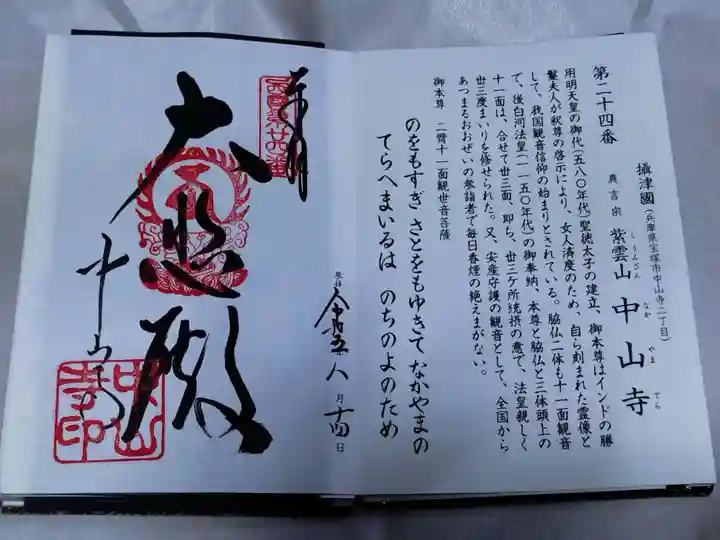 第二十四番
攝津國(兵庫県宝塚市中山寺二丁目)
真言宗 紫雲山 中山寺
しうんざん なか やま でら
用明天皇の御代(五八〇年代)聖徳太子の建立、御本尊はインドの勝
鬘夫人が釈尊の啓示により、女人済度のため、自ら刻まれた霊像と
して、我国観音信仰の始まりとされている。脇仏二体も十一面観音
で、後白河法皇(一一五〇年代)の御奉納、本尊と脇仏と三体頭上の
十一面は、合せて丗三面、即ち、丗三ケ所統摂の意で、法皇親しく
丗三度まいりを修せられた。又、安産守護の観音として、全国から
あつまるおおぜいの参詣者で毎日香煙の絶えまがない。
御本尊 二臂十一面観世音菩薩
のをもすぎ さとをもゆきて なかやまの
てらへまいるは のちのよのため
奉拝
大悲殿
中山寺
参拝 令和五年 八月 十四日
中山寺印